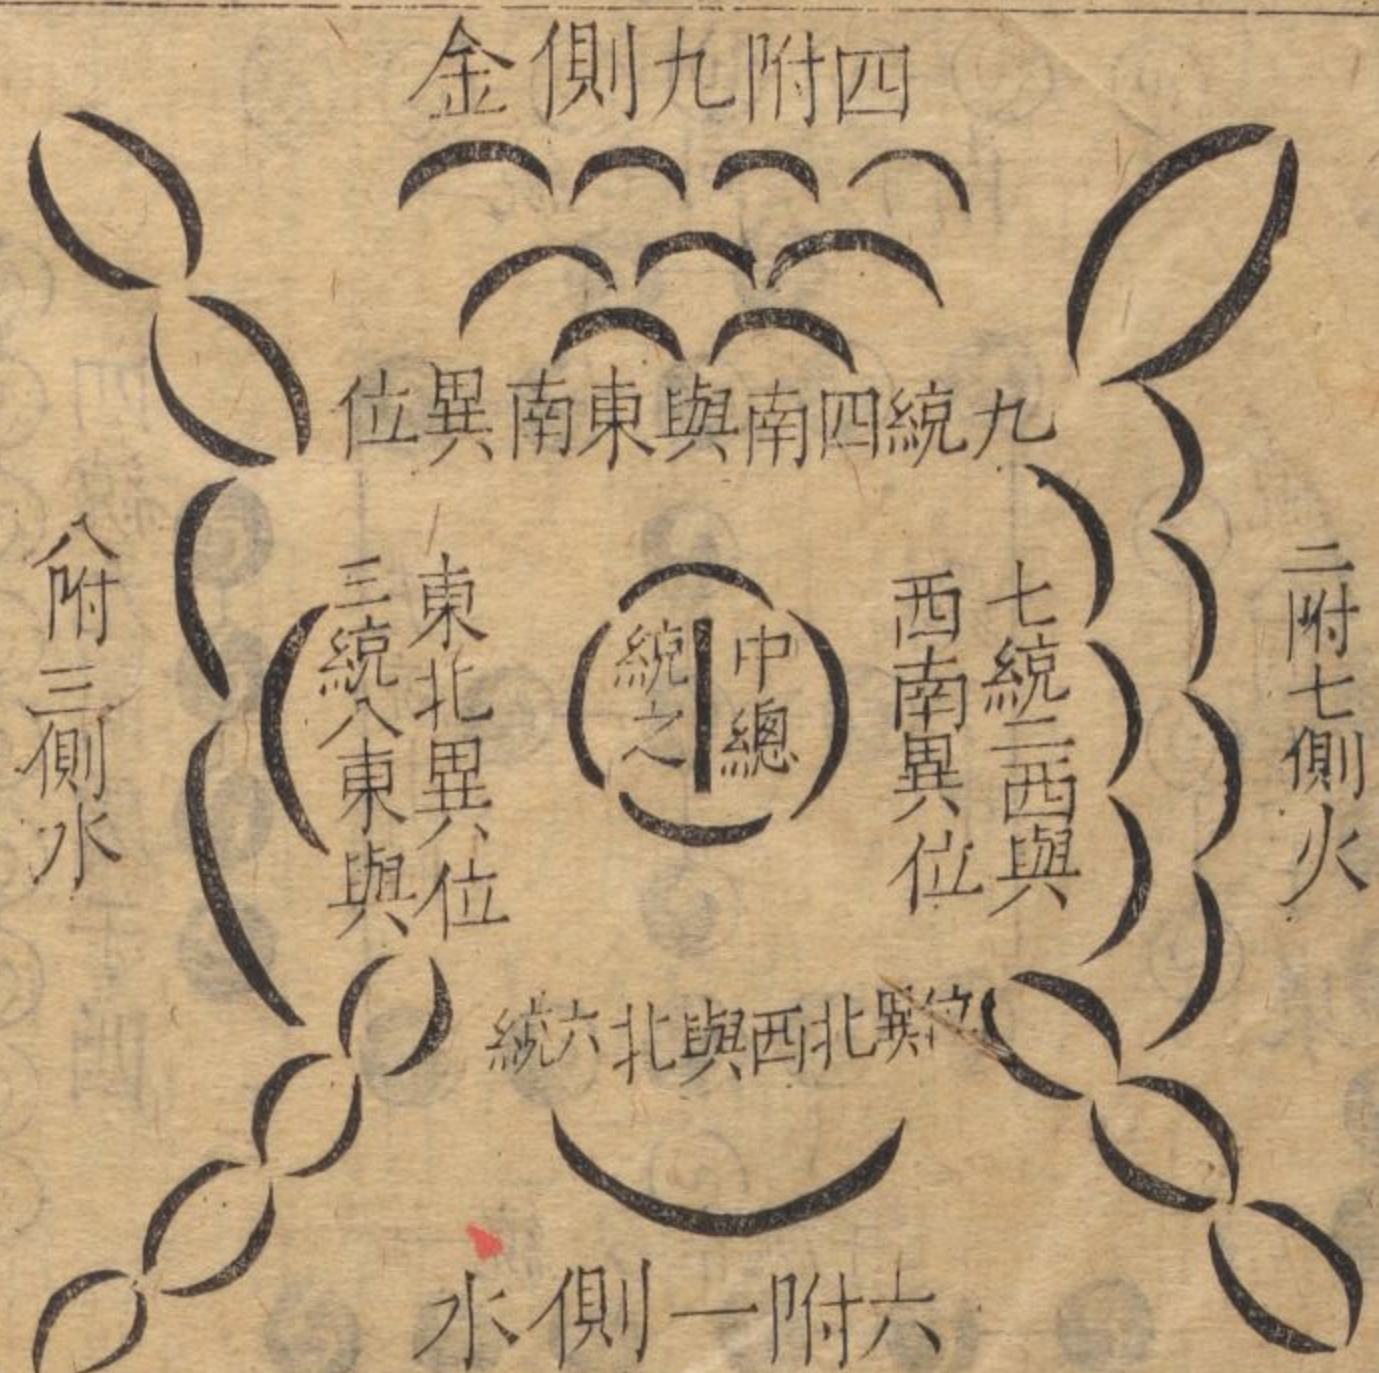 四附九側金
九統四南與東南異位
二附七側火
七統二西與
西南異位
中總
統之
東北異位
三統八東與
八附三側水
位異北西與北六統
六附一側水